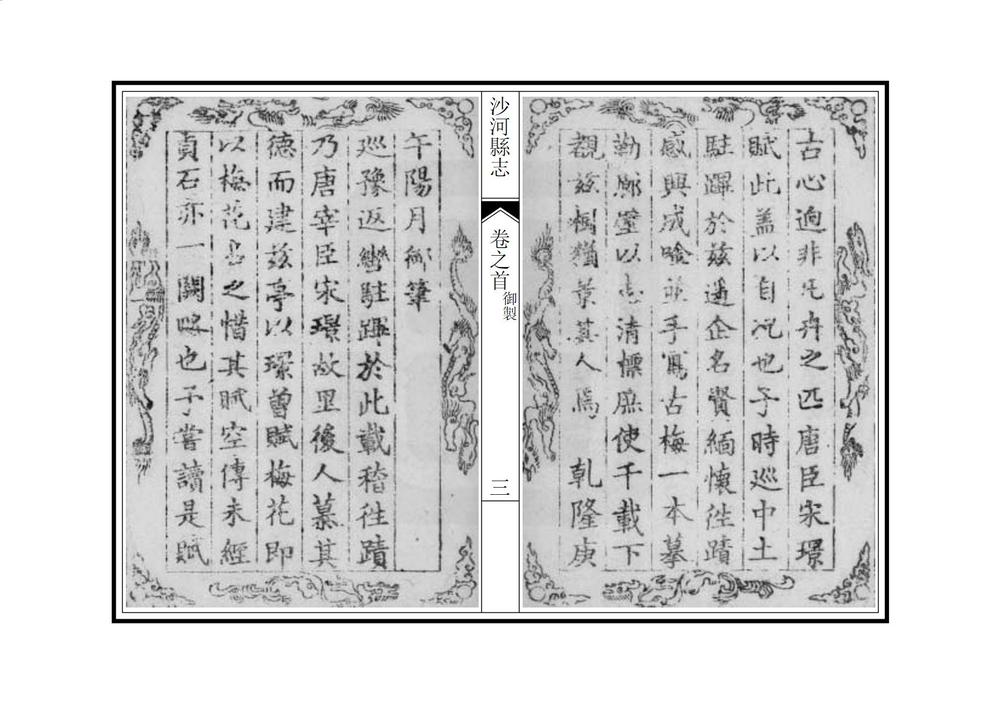 古心逈非凡卉之匹唐臣宋璟
賦此蓋以自況也予時巡中土
駐蹕於茲遥企名賢緬懷徃蹟
感興成唫並手寫古梅一本摹
勒廊壁以志清標庶使千載下
覩茲楮猶萯其人焉 乾隆庚
沙河縣志
卷之首
御製
三
午陽月御筆
巡豫返轡駐蹕於此載稽徃蹟
乃唐宰臣宋璟故里後人慕其
德而建茲亭以璟曾賦梅花即
以梅花名之惜其賦空傳未經
貞石亦一闕略也予嘗讀是賦